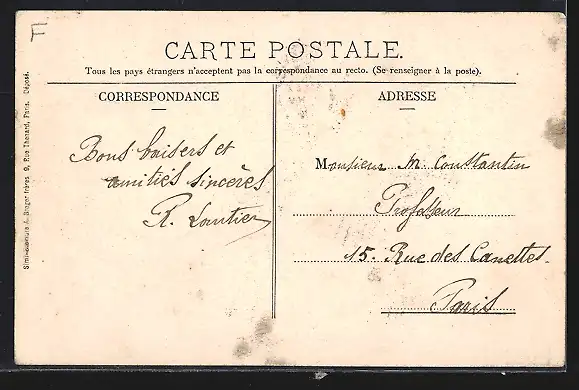 F
CARTE POSTALE.
Tous les pays étrangers n'acceptent pas la correspondance au recto. (Se renseigner à la poste).
CORRESPONDANCE
Bons baisers et
amitiés sincères
R. Lautier
ADRESSE
Monsieur M. Constantin
Professeur
15. Rue des Canettes.
Paris
Simili-gravure A. Breger frères, 9, Rue Thénard, Paris. Déposé.